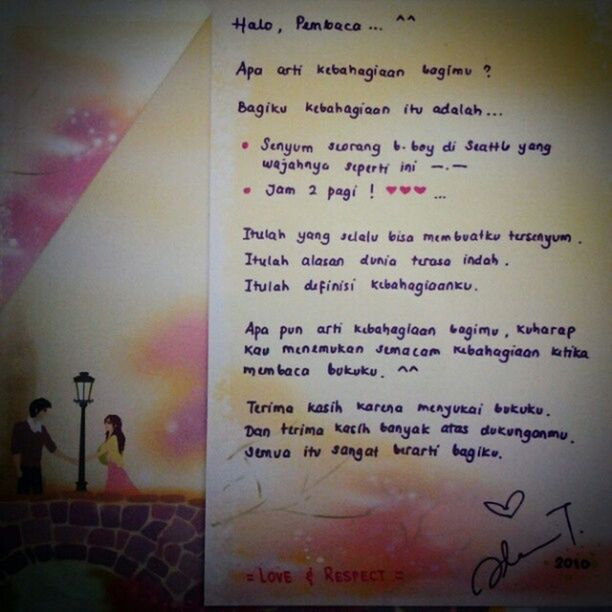 Halo, Pembaca... ^^
Apa arti kebahagiaan bagimu ?
Bagiku kebahagiaan itu adalah...
• Senyum seorang b-boy di Seattle yang
wajahnya seperti ini —.—
• Jam 2 pagi ! ♥♥♥ ...
Itulah yang selalu bisa membuatku tersenyum.
Itulah alasan dunia terasa indah.
Itulah definisi kebahagiaanku.
Apa pun arti kebahagiaan bagimu, kuharap
kau menemukan semacam kebahagiaan ketika
membaca bukuku. ^^
Terima kasih karena menyukai bukuku.
Dan terima kasih banyak atas dukunganmu.
Semua itu sangat berarti bagiku.
2010
= LOVE & RESPECT =